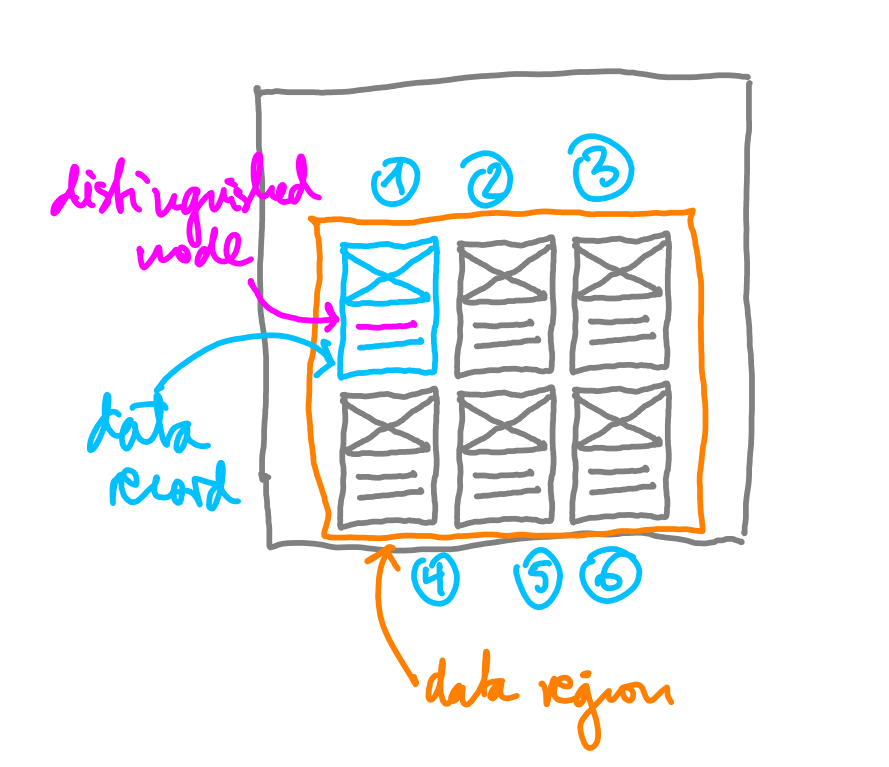 1 2 3
distinguished
node
data
record
4 5 6
data region